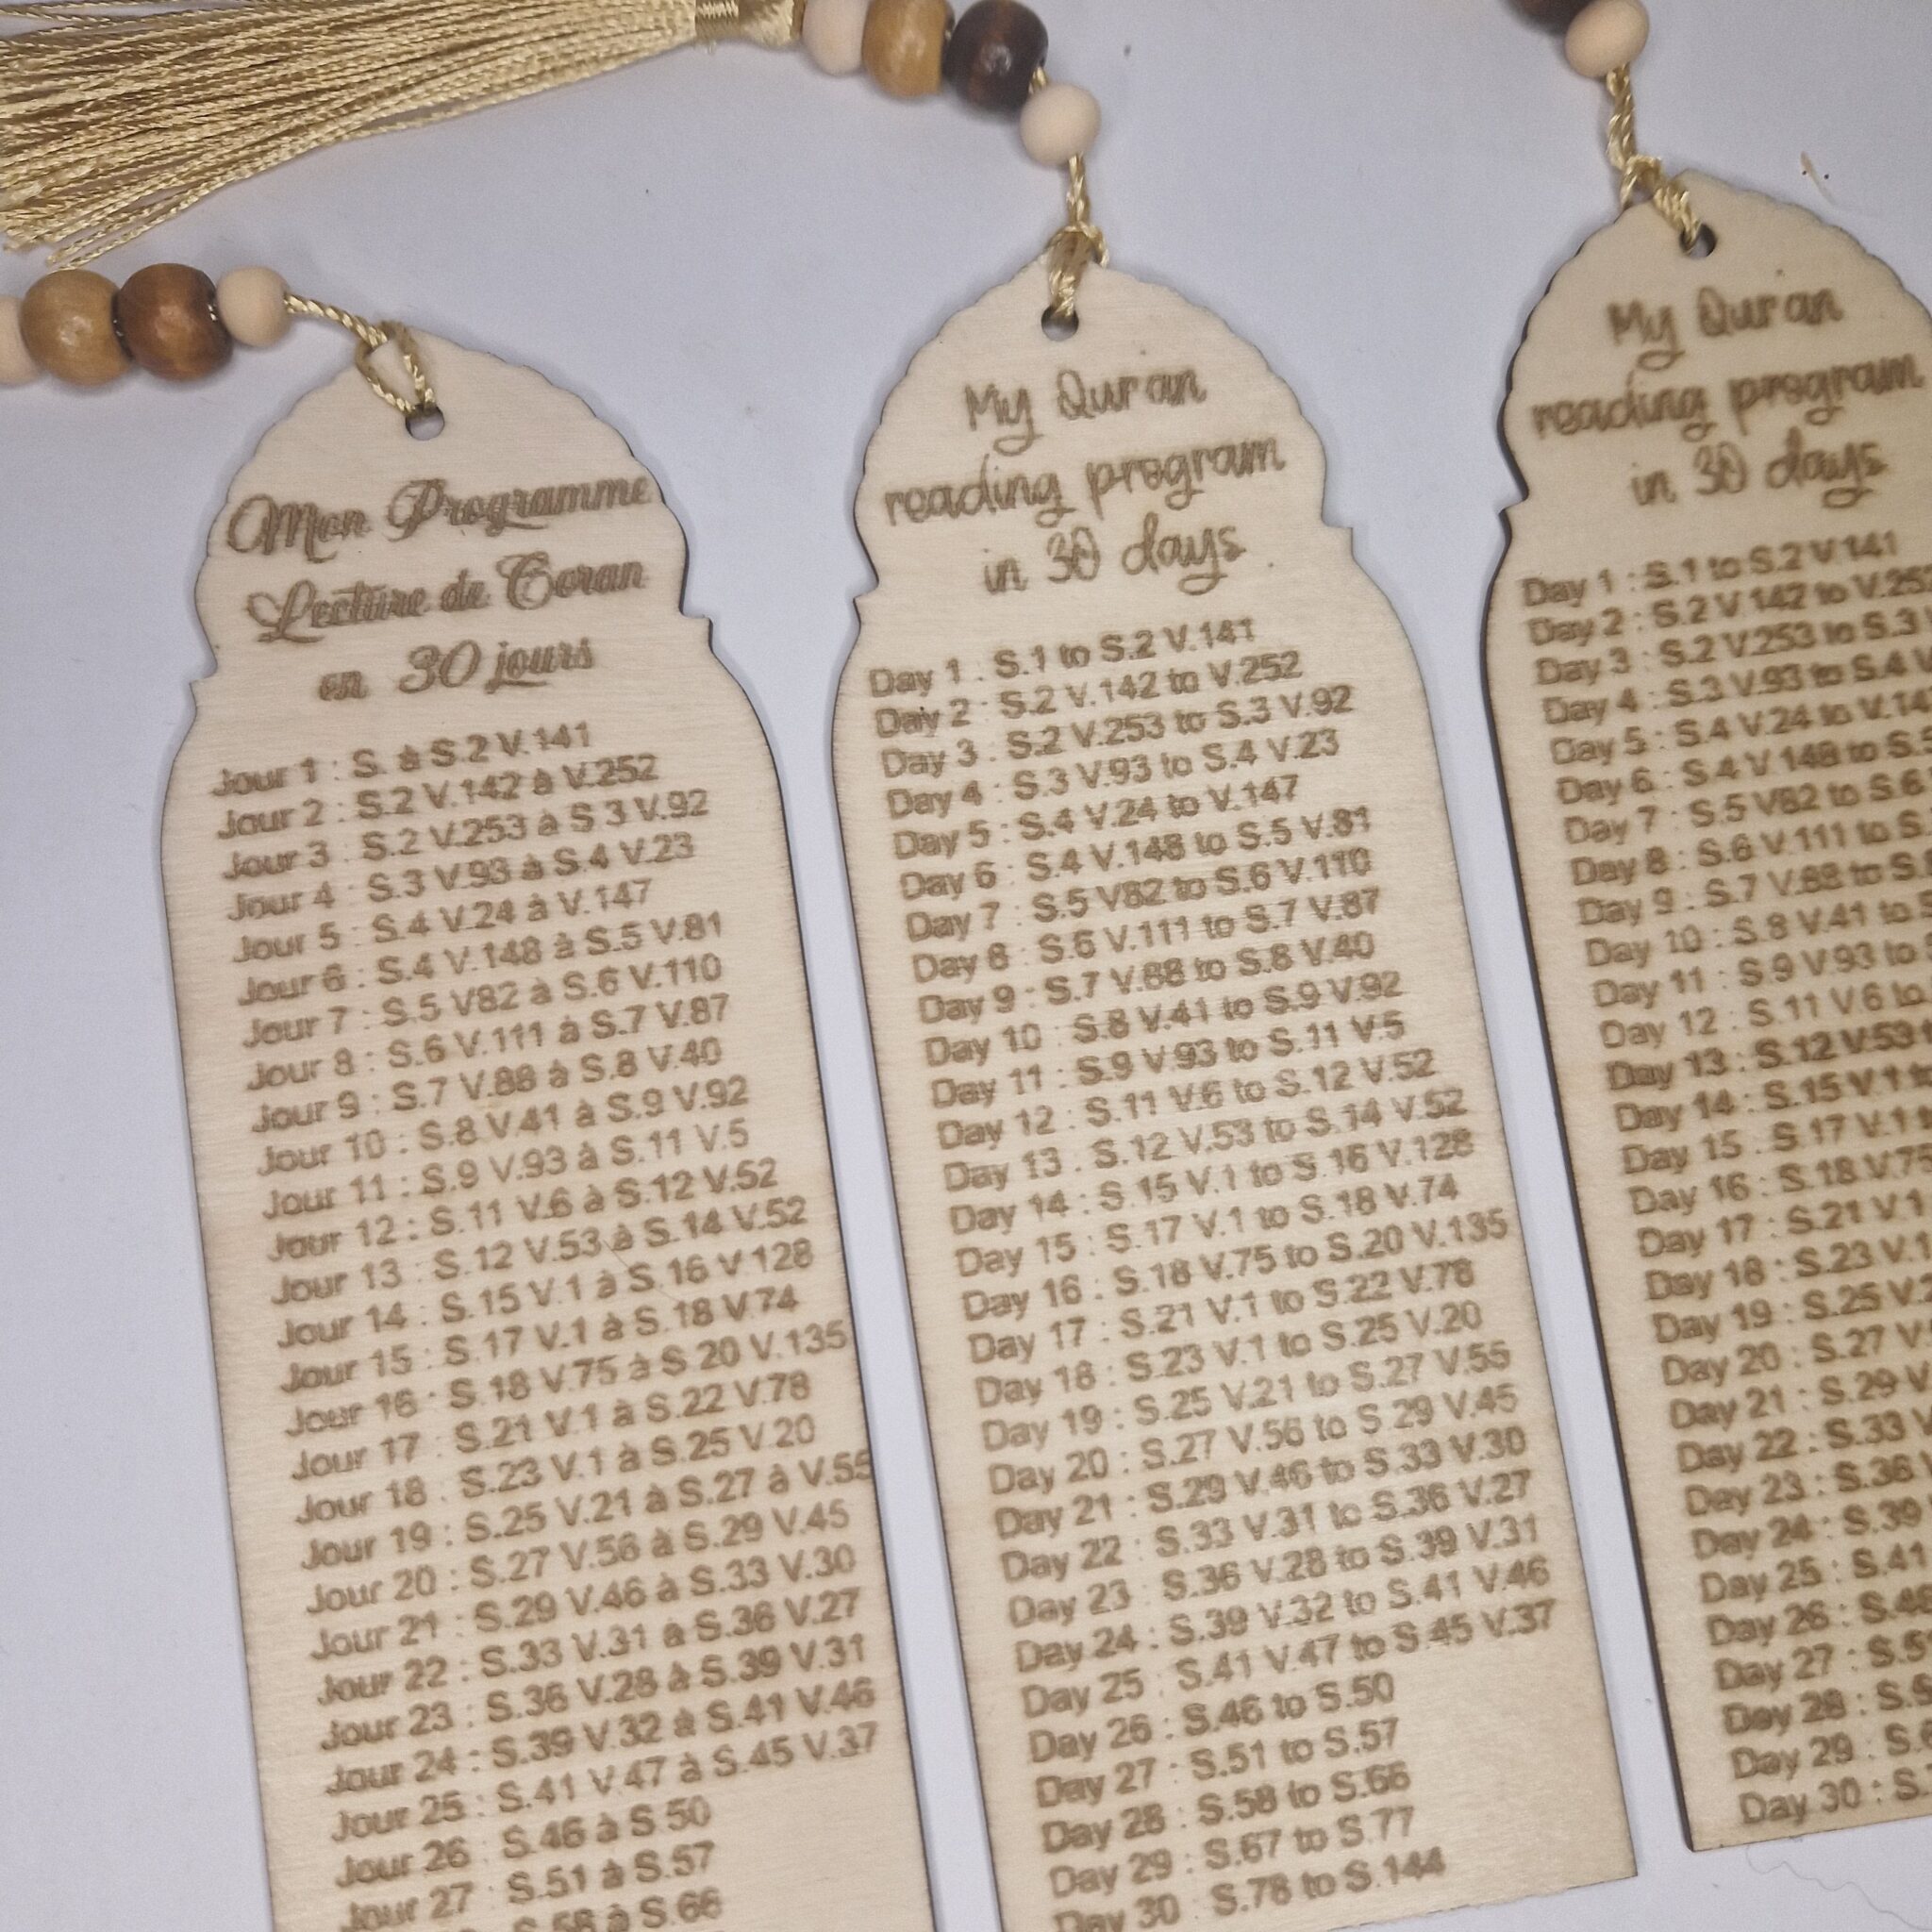 Mon Programme
Lecture de Coran
en 30 jours
Jour 1 : S. à S.2 V.141
Jour 2 : S.2 V.142 à V.252
Jour 3 : S.2 V.253 à S.3 V.92
Jour 4 : S.3 V.93 à S.4 V.23
Jour 5 : S.4 V.24 à V.147
Jour 6 : S.4 V.148 à S.5 V.81
Jour 7 : S.5 V82 à S.6 V.110
Jour 8 : S.6 V.111 à S.7 V.87
Jour 9 : S.7 V.88 à S.8 V.40
Jour 10 : S.8 V.41 à S.9 V.92
Jour 11 : S.9 V.93 à S.11 V.5
Jour 12 : S.11 V.6 à S.12 V.52
Jour 13 : S.12 V.53 à S.14 V.52
Jour 14 : S.15 V.1 à S.16 V.128
Jour 15 : S.17 V.1 à S.18 V.74
Jour 16 : S.18 V.75 à S.20 V.135
Jour 17 : S.21 V.1 à S.22 V.78
Jour 18 : S.23 V.1 à S.25 V.20
Jour 19 : S.25 V.21 à S.27 à V.55
Jour 20 : S.27 V.56 à S.29 V.45
Jour 21 : S.29 V.46 à S.33 V.30
Jour 22 : S.33 V.31 à S.36 V.27
Jour 23 : S.36 V.28 à S.39 V.31
Jour 24 : S.39 V.32 à S.41 V.46
Jour 25 : S.41 V.47 à S.45 V.37
Jour 26 : S.46 à S.50
Jour 27 : S.51 à S.57
S.58 à S.66
My Quran
reading program
in 30 days
Day 1 : S.1 to S.2 V.141
Day 2 : S.2 V.142 to V.252
Day 3 : S.2 V.253 to S.3 V.92
Day 4 : S.3 V.93 to S.4 V.23
Day 5 : S.4 V.24 to V.147
Day 6 : S.4 V.148 to S.5 V.81
Day 7 : S.5 V82 to S.6 V.110
Day 8 : S.6 V.111 to S.7 V.87
Day 9 : S.7 V.88 to S.8 V.40
Day 10 : S.8 V.41 to S.9 V.92
Day 11 : S.9 V.93 to S.11 V.5
Day 12 : S.11 V.6 to S.12 V.52
Day 13 : S.12 V.53 to S.14 V.52
Day 14 : S.15 V.1 to S.16 V.128
Day 15 : S.17 V.1 to S.18 V.74
Day 16 : S.18 V.75 to S.20 V.135
Day 17 : S.21 V.1 to S.22 V.78
Day 18 : S.23 V.1 to S.25 V.20
Day 19 : S.25 V.21 to S.27 V.55
Day 20 : S.27 V.56 to S.29 V.45
Day 21 : S.29 V.46 to S.33 V.30
Day 22 : S.33 V.31 to S.36 V.27
Day 23 : S.36 V.28 to S.39 V.31
Day 24 : S.39 V.32 to S.41 V.46
Day 25 : S.41 V.47 to S.45 V.37
Day 26 : S.46 to S.50
Day 27 : S.51 to S.57
Day 28 : S.58 to S.66
Day 29 : S.67 to S.77
Day 30 : S.78 to S.144
My Quran
reading program
in 30 days
Day 1 : S.1 to S.2 V.141
Day 2 : S.2 V.142 to V.25
Day 3 : S.2 V.253 to S.3
Day 4 : S.3 V.93 to S.4
Day 5 : S.4 V.24 to V.14
Day 6 : S.4 V.148 to S.
Day 7 : S.5 V82 to S.6
Day 8 : S.6 V.111 to S.
Day 9 : S.7 V.88 to S.
Day 10 : S.8 V.41 to
Day 11 : S.9 V.93 to
Day 12 : S.11 V.6 to
Day 13 : S.12 V.53
Day 14 : S.15 V.1 to
Day 15 : S.17 V.1
Day 16 : S.18 V.75
Day 17 : S.21 V.1
Day 18 : S.23 V.1
Day 19 : S.25 V.
Day 20 : S.27 V.
Day 21 : S.29 V
Day 22 : S.33 V
Day 23 : S.36
Day 24 : S.39
Day 25 : S.41
Day 26 : S.4
Day 27 : S.5
Day 28 : S.5
Day 29 : S.
Day 30 : S.